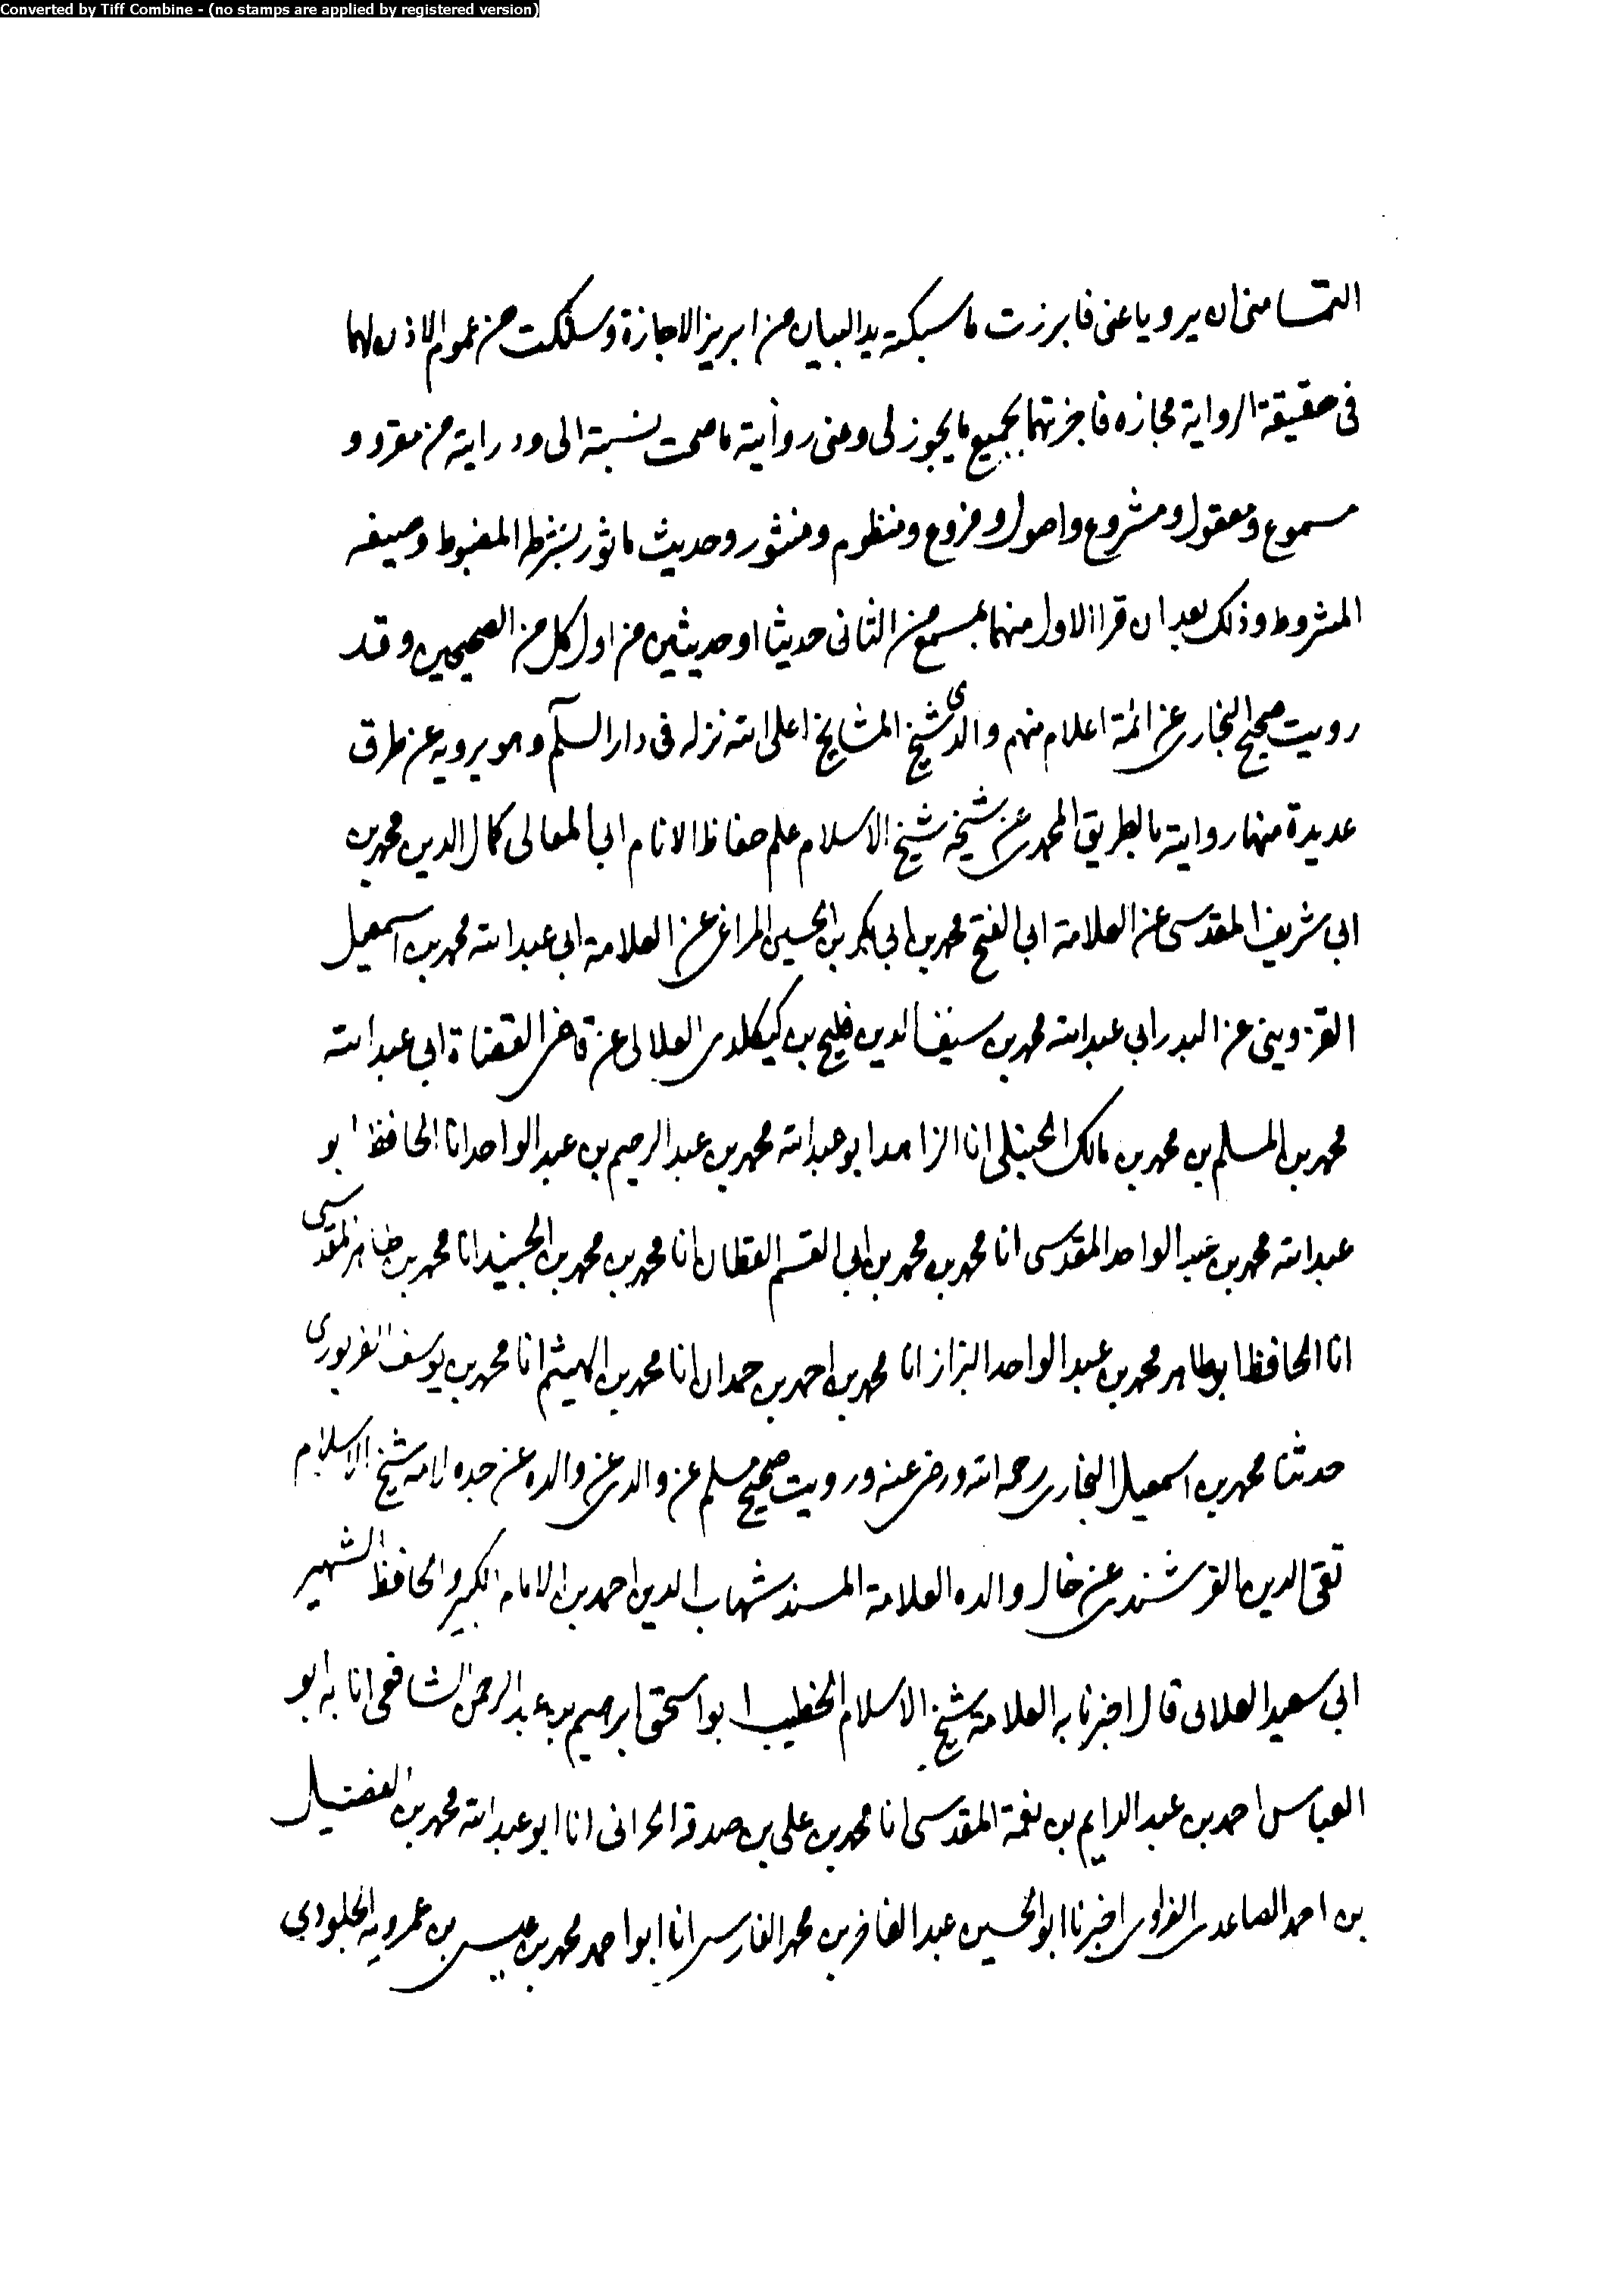 Converted by Tiff Combine - (no stamps are applied by registered version)
التمسا منى ان يرويا عنى فابرزت ما سبكته يد البيان من ابريز الاجازة وسلكت من عموم الاذن لهما
فى حقيقة الرواية مجازه فاجزتهما بجميع ما يجوز لى وعنى روايته ما صحت نسبته الى ودرايته من مقرو و
مسموع ومعقول ومشروع واصول وفروع ومنظوم ومنثور وحديث ماثور بشرطه المضبوط وصيغه
المشروط وذلك بعد ان قرا الاول منهما بمسمع من الثانى حديثا او حديثين من اول كل من الصحيحين وقد
رويت صحيح البخارى عن ائمة اعلام منهم والدى شيخ المشايخ اعلى الله نزله فى دار السلم وهو يرويه عن طرق
عديدة منها روايته بالطريق المحمدى عن شيخه شيخ الاسلام علم حفاظ الانام ابى المعالى كمال الدين محمد بن
ابى شريف المقدسى عن العلامة ابى الفتح محمد بن ابى بكر بن الحسين المراغى عن العلامة ابى عبد الله محمد بن اسمعيل
القزوينى عن البدر ابى عبد الله محمد بن سيف الدين قليج بن كيكلدى العلالى عن قاضى القضاة ابى عبد الله
محمد بن المسلم بن محمد بن مالك الحنبلى انا الزاهد ابو عبد الله محمد بن عبد الرحيم بن عبد الواحد انا الحافظ ابو
عبد الله محمد بن عبد الواحد المقدسى انا محمد بن محمد بن ابى القسم القطان انا محمد بن محمد بن الجنيد انا محمد بن طاهر المقدسى
انا الحافظ ابو طاهر محمد بن عبد الواحد البزاز انا محمد بن احمد بن حمدان انا محمد بن الهيثم انا محمد بن يوسف الفربورى
حدثنا محمد بن اسمعيل البخارى رحمه الله ورضى عنه ورويت صحيح مسلم عن والدى عن والده عن جده لامه شيخ الاسلام
تقى الدين القرشندى عن خال والده العلامة المسند شهاب الدين احمد بن الامام الكبير والحافظ الشهير
ابى سعيد العلالى قال اخبرنا به العلامة شيخ الاسلام الخطيب ابو اسحق ابرهيم بن عبد الرحمن الشافعى انا به ابو
العباس احمد بن عبد الدايم بن نعمة المقدسى انا محمد بن على بن صدقة الحرانى انا ابو عبد الله محمد بن الفضيل
بن احمد الصاعدى الفراوى اخبرنا ابو الحسين عبد الغافر بن محمد الفارسى انا ابو احمد محمد بن عيسى بن عمرويه الجلودي